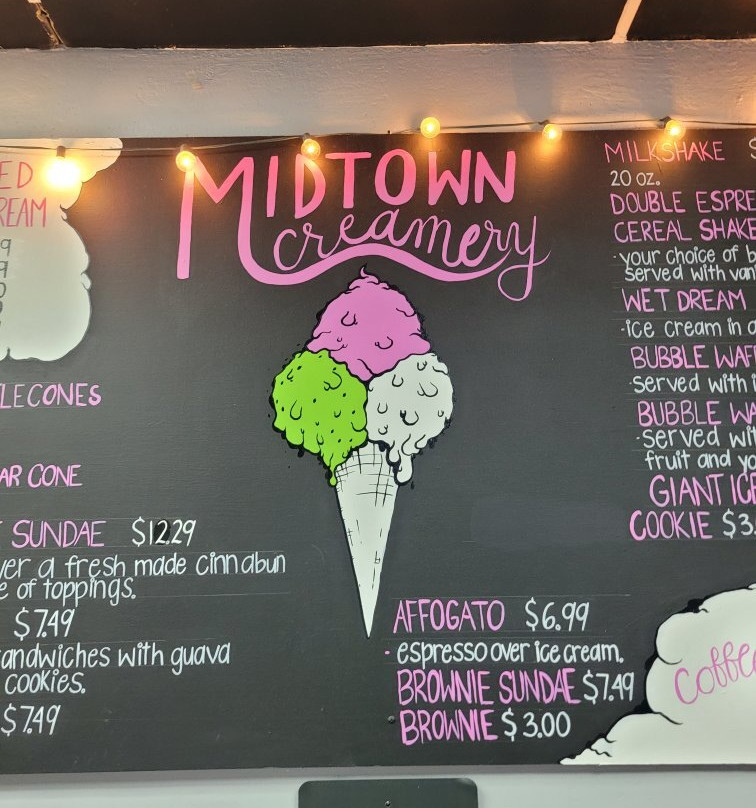 MIDTOWN
creamery
ED
REAM
9
9
0
LE CONES
AR CONE
SUNDAE $12.29
ver a fresh made cinnabun
e of toppings.
$7.49
andwiches with guava
cookies.
$7.49
AFFOGATO $6.99
- espresso over ice cream.
BROWNIE SUNDAE $7.49
BROWNIE $3.00
MILKSHAKE
20 oz.
DOUBLE ESPRE
CEREAL SHAKE
·your choice of b
served with van
WET DREAM
·ice cream in a
BUBBLE WAF
·served with i
BUBBLE WA
·served wit
fruit and yo
GIANT ICE
COOKIE $3.
Coffe